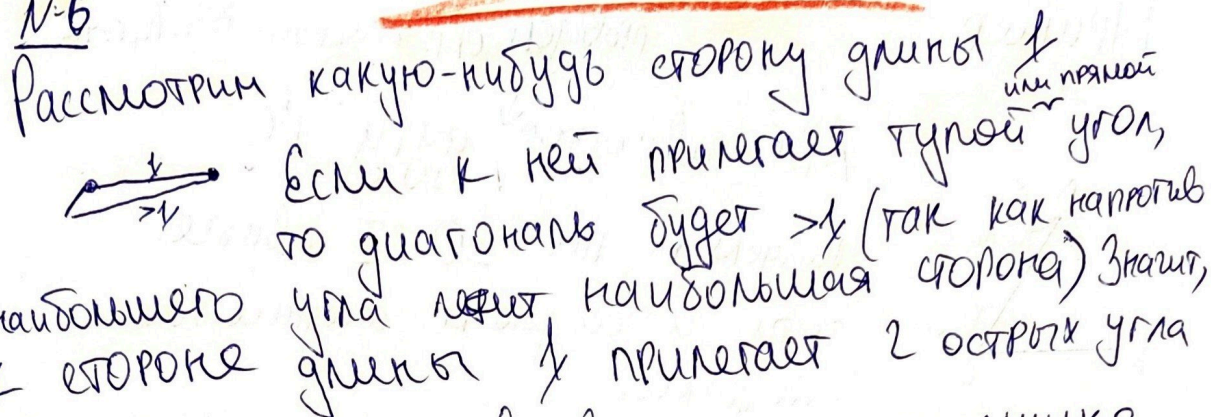 №6
Рассмотрим какую-нибудь сторону длины 1
или прямой
1 Если к ней прилегает тупой угол,
>1
то диагональ будет >1 (так как напротив
наибольшего угла лежит наибольшая сторона) Значит,
стороне длины 1 прилегает 2 острых угла